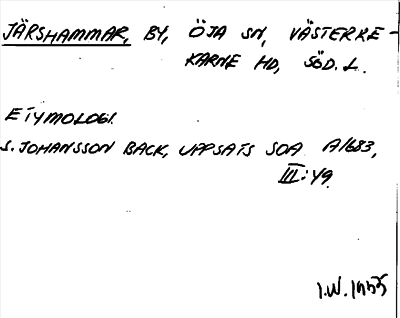 JÄRSHAMMAR, BY, ÖJA SN, VÄSTERRE-
KARNE HD, SÖD. L.
ETYMOLOGI.
S. JOHANSSON BACK, UPPSATS SOA A1683,
III: 49.
I.W. 1955